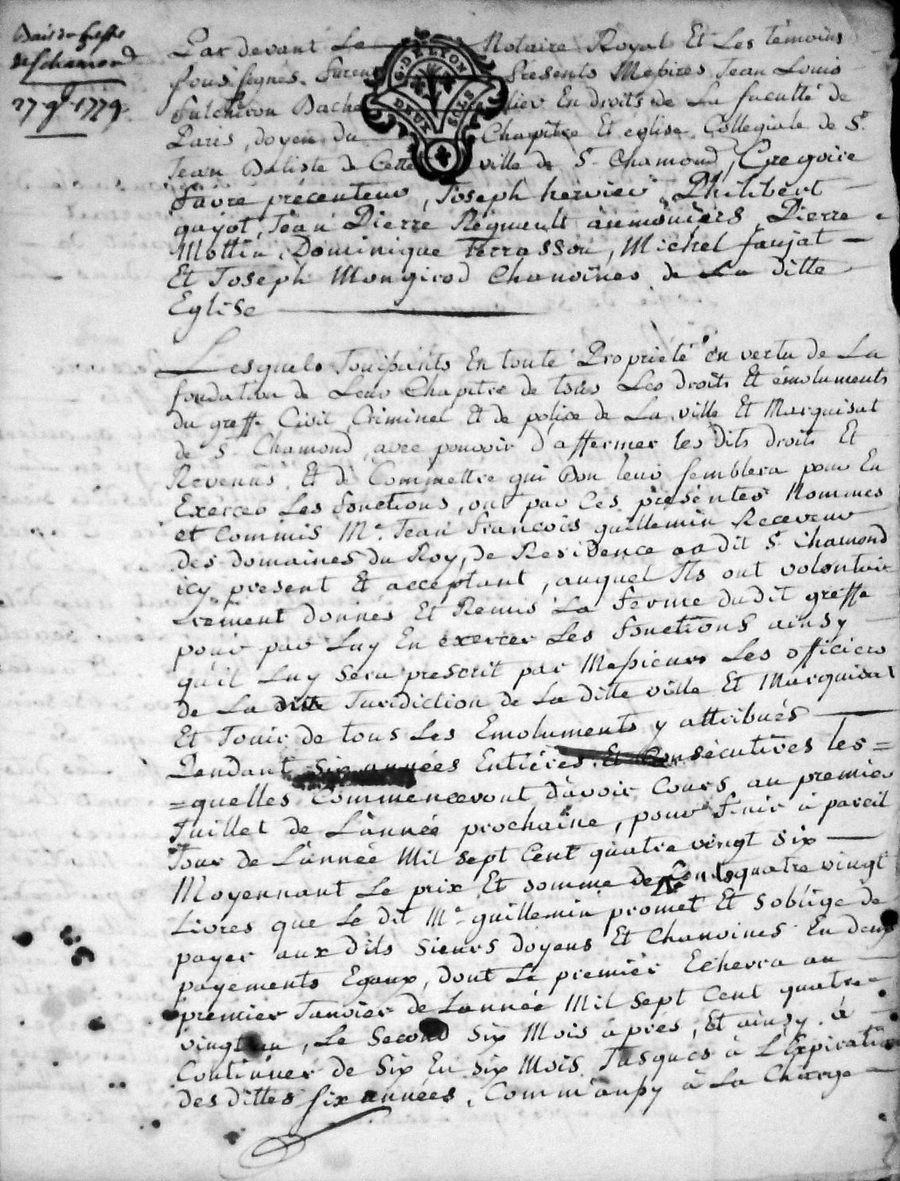 Bail de greffe
de St chamond
27 9bre 1779
G. D. LYON
DEUX SOLS
Par devant Le Notaire Royal Et Les témoins
soussignés furent Presents Messires Jean Louis
Fulchiron Bachelier En droits de La faculté de
Paris, doyen du Chapitre Et eglise Collegiale de St
Jean Batiste de Cette ville de St Chamond, Gregoire
favre précenteur, Joseph hervier Philibert
guyot, Jean Pierre Régneult aumôniers, Pierre
Mottin, Dominique Terrasson, Michel faujat
Et Joseph Mongirod Chanoines de La ditte
Eglise
Lesquels Jouissants En toute Propriété en vertu de La
fondation de Leur Chapitre de tous Les droits Et émoluments
du greffe Civil Criminel Et de police de La ville Et Marquisat
de St Chamond, avec pouvoir d'affermer les dits droits Et
Revenus, Et de Commettre qui Bon leur semblera pour En
Exercer Les fonctions, ont par Ces présentes Nommés
et Commis Me Jean François guillemin Receveur
des domaines du Roy, de Résidence audit St Chamond
icy present Et acceptant, auquel Ils ont volontai
rement donnés Et Remis La ferme dudit greffe
pour par Luy En exercer Les fonctions ainsy
qu'il Luy sera prescrit par Messieurs Les officiers
de La ditte Jurdiction de La ditte ville Et Marquisat
Et Jouir de tous Les Emoluments y attribués
Pendant six années Entières Et Consécutives les=
=quelles Commenceront d'avoir Cours au premier
Juillet de L'année prochaine, pour finir à pareil
Jour de L'année Mil sept Cent quatre vingt six
Moyennant Le prix Et somme de quatre vingt
Livres que Le dit Me guillemin promet Et s'oblige de
payer aux dits sieurs doyens Et Chanoines En deux
payements Egaux, dont Le premier Echerra au
premier Janvier de L'année Mil sept Cent quatre
vingt un, Le Second Six Mois après, Et ainsy à
Continuer de Six En six Mois Jusques à L'Expiration
des dittes six années, Comm'aussy à La Charge